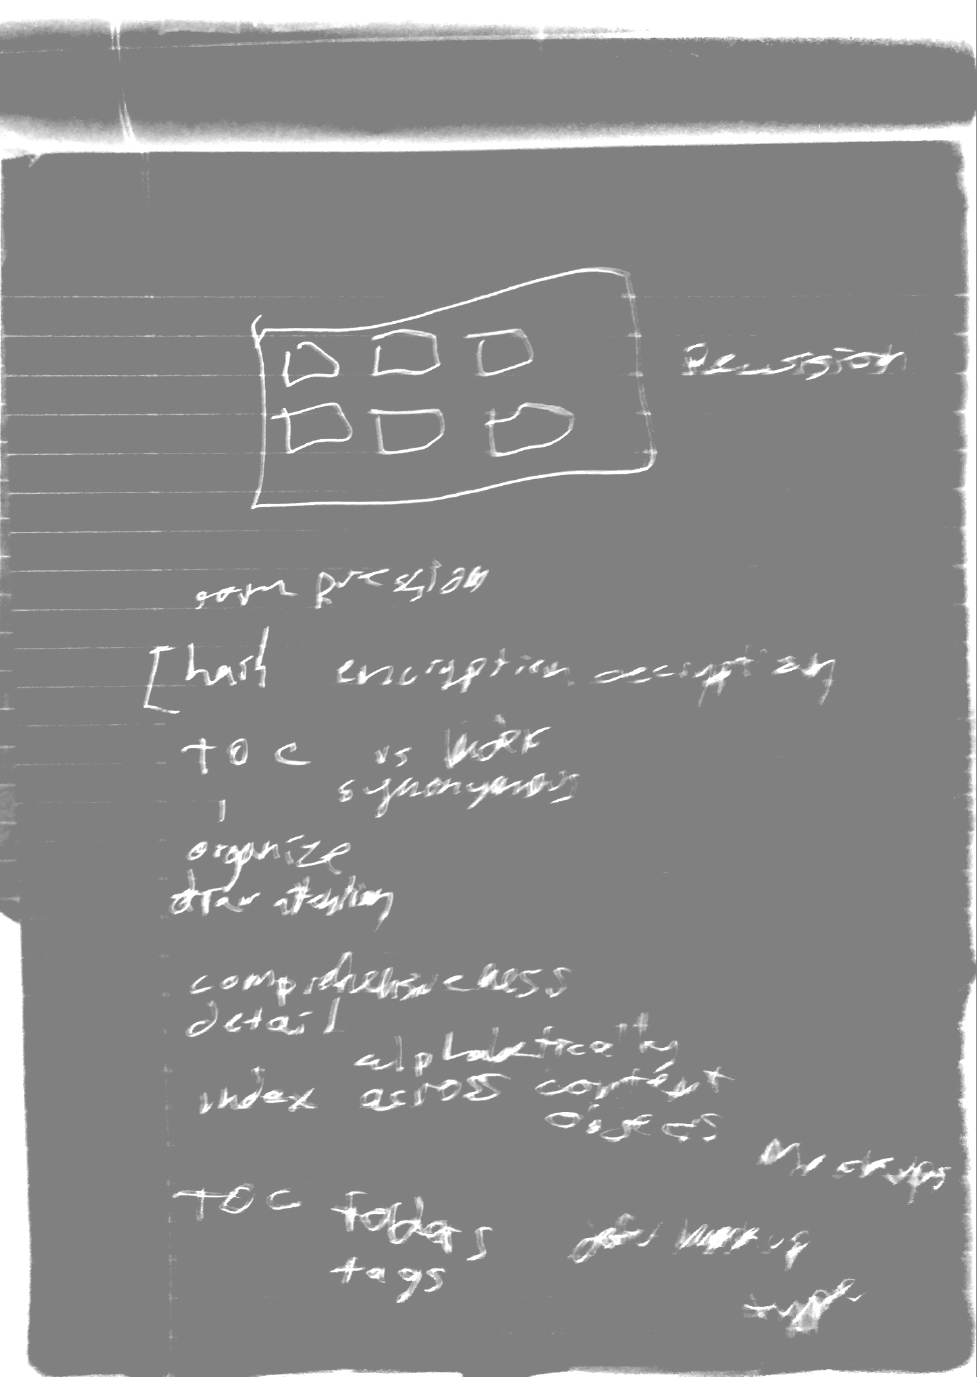 Recursion
hash encryption decryption
TOC vs index
synonymous
organize
draw attention
comprehensiveness
detail
alphabetically
index across content
objects
Mockups
TOC folders
tags
type